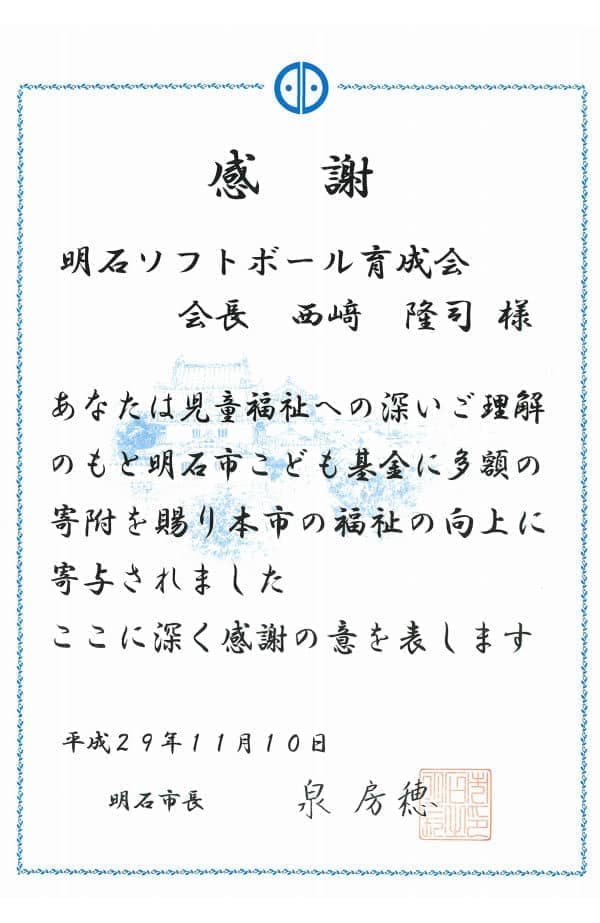 感 謝
明石ソフトボール育成会
会長 西﨑 隆司 様
あなたは児童福祉への深いご理解
のもと明石市こども基金に多額の
寄附を賜り本市の福祉の向上に
寄与されました
ここに深く感謝の意を表します
平成29年11月10日
明石市長 泉 房穂